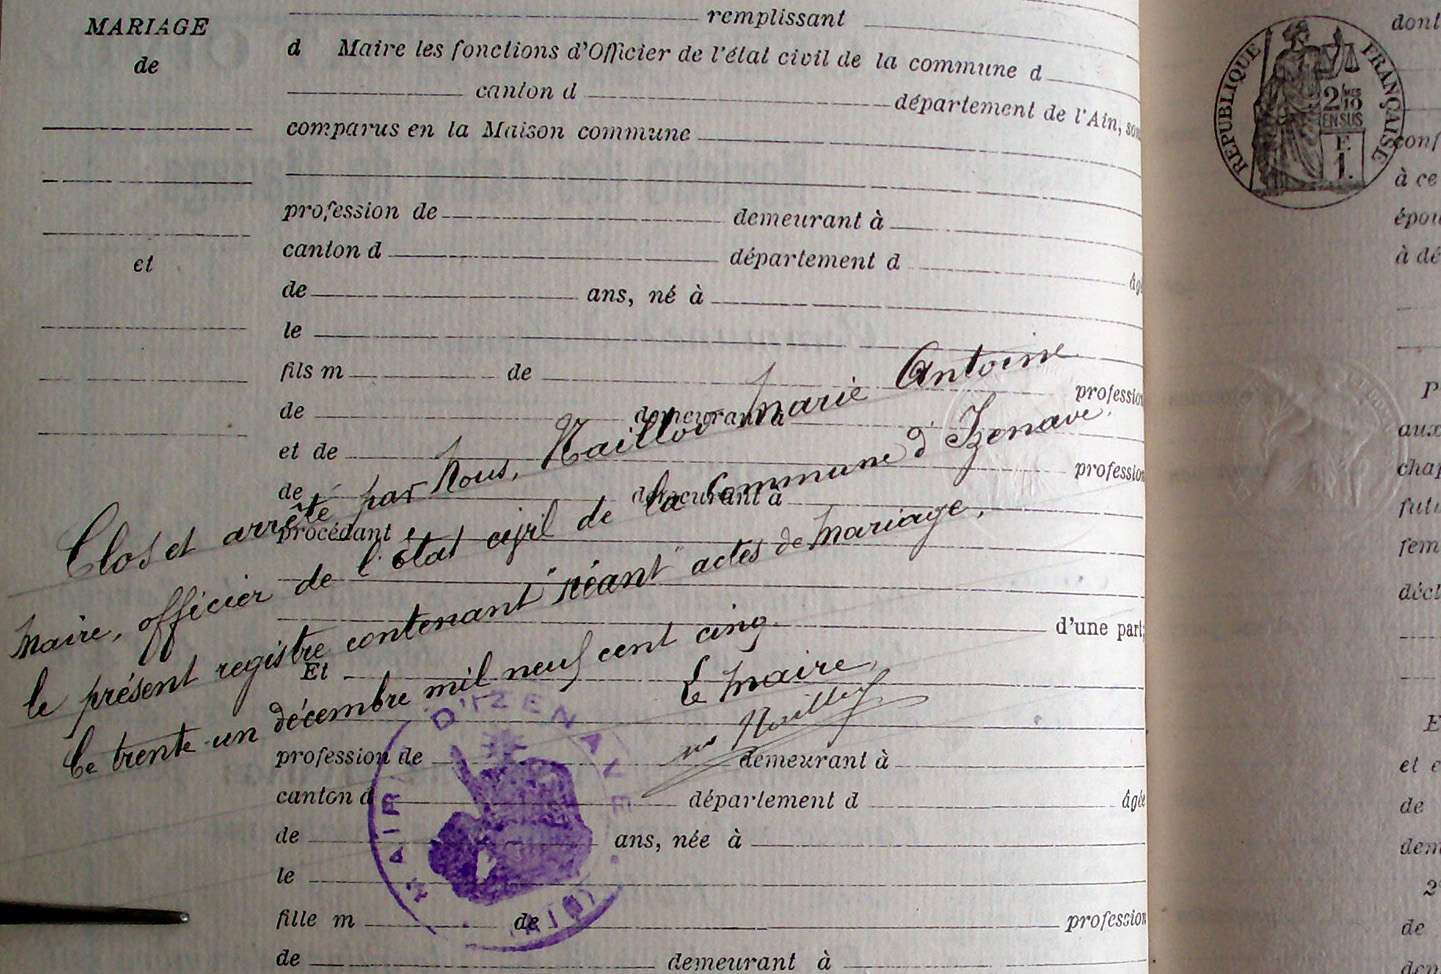 MARIAGE
de
et
remplissant
d Maire les fonctions d'Officier de l'état civil de la commune d
canton d département de l'Ain, son
comparus en la Maison commune
profession de demeurant à
canton d département d âgé
de ans, né à
le
fils m de profession
de demeurant à
et de profession
de demeurant à
procédant
d'une part;
Et
profession de demeurant à
canton d département d âgée
de ans, née à
le
fille m de profession
de demeurant à
Clos et arrêté par Nous, Maillod Marie Antoine
Maire, officier de l'état civil de la Commune d'Izenave,
le présent registre contenant "Néant" actes de Mariage,
Ce trente-un décembre mil neuf cent cinq.
Le Maire,
MAIRIE D'IZENAVE
(AIN)
RÉPUBLIQUE FRANÇAISE
2/10
EN SUS
F.
1.
dont
conf
à ce
épou
à dé
P
aux
chap
futu
fem
décl
E
et e
de
dem
2
de
dem